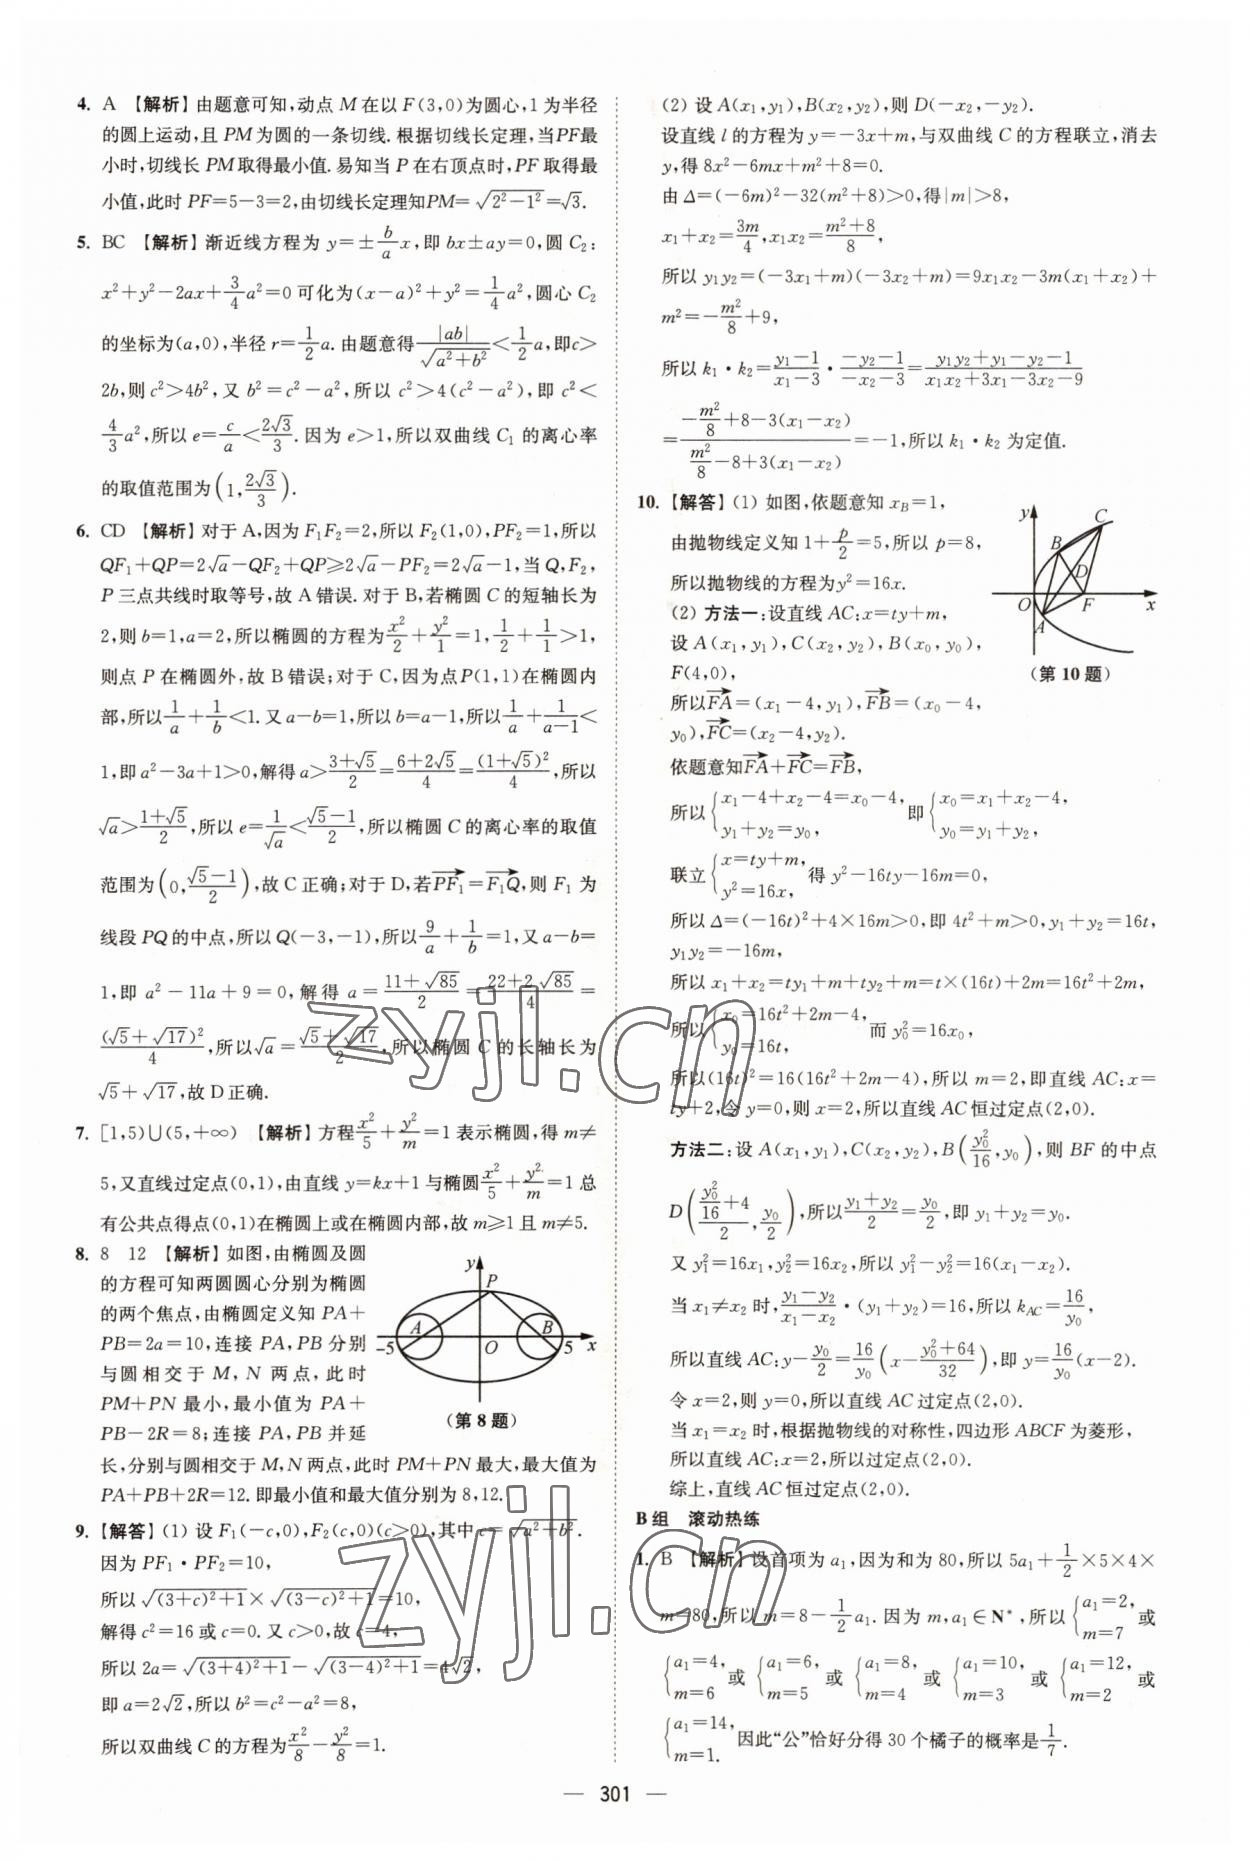 4. A 【解析】由题意可知,动点 M 在以 F(3,0)为圆心,1 为半径
的圆上运动,且 PM 为圆的一条切线. 根据切线长定理,当PF最
小时,切线长 PM 取得最小值. 易知当 P 在右顶点时,PF 取得最
小值,此时 PF=5-3=2,由切线长定理知PM=√(2²-1²)=√3.
5. BC 【解析】渐近线方程为 y=±(b/a)x,即 bx±ay=0,圆 C₂:
x²+y²-2ax+(3/4)a²=0 可化为(x-a)²+y²=(1/4)a²,圆心 C₂
的坐标为(a,0),半径 r=(1/2)a. 由题意得|ab|/√(a²+b²)<(1/2)a,即c>
2b,则 c²>4b²,又 b²=c²-a²,所以 c²>4(c²-a²),即 c²<
(4/3)a²,所以 e=c/a<2√3/3. 因为 e>1,所以双曲线 C₁ 的离心率
的取值范围为(1,2√3/3).
6. CD 【解析】对于 A,因为 F₁F₂=2,所以 F₂(1,0),PF₂=1,所以
QF₁+QP=2√a-QF₂+QP⩾2√a-PF₂=2√a-1,当 Q,F₂,
P 三点共线时取等号,故 A 错误. 对于 B,若椭圆 C 的短轴长为
2,则 b=1,a=2,所以椭圆的方程为x²/2+y²/1=1,1/2+1/1>1,
则点 P 在椭圆外,故 B 错误;对于 C,因为点P(1,1)在椭圆内
部,所以1/a+1/b<1. 又 a-b=1,所以 b=a-1,所以1/a+1/(a-1)<
1,即 a²-3a+1>0,解得 a>(3+√5)/2=(6+2√5)/4=(1+√5)²/4,所以
√a>(1+√5)/2,所以 e=1/√a<(√5-1)/2,所以椭圆 C 的离心率的取值
范围为(0,(√5-1)/2),故 C 正确;对于 D,若PF₁→=F₁Q→,则 F₁ 为
线段 PQ 的中点,所以 Q(-3,-1),所以9/a+1/b=1,又 a-b=
1,即 a²-11a+9=0,解得 a=(11+√85)/2=(22+2√85)/4=
(√5+√17)²/4,所以√a=(√5+√17)/2,所以椭圆 C 的长轴长为
√5+√17,故 D 正确.
7. [1,5)∪(5,+∞) 【解析】方程x²/5+y²/m=1 表示椭圆,得 m≠
5,又直线过定点(0,1),由直线 y=kx+1 与椭圆x²/5+y²/m=1 总
有公共点得点(0,1)在椭圆上或在椭圆内部,故 m⩾1 且 m≠5.
8. 8 12 【解析】如图,由椭圆及圆
的方程可知两圆圆心分别为椭圆
的两个焦点,由椭圆定义知 PA+
PB=2a=10,连接 PA,PB 分别
与圆相交于 M,N 两点,此时
PM+PN 最小,最小值为 PA+
PB-2R=8;连接 PA,PB 并延
长,分别与圆相交于 M,N 两点,此时 PM+PN 最大,最大值为
PA+PB+2R=12. 即最小值和最大值分别为 8,12.
y
P
A
B
-5
O
5
x
(第 8 题)
9. 【解答】(1) 设 F₁(-c,0),F₂(c,0)(c>0),其中 c=√(a²+b²).
因为 PF₁·PF₂=10,
所以√((3+c)²+1)×√((3-c)²+1)=10,
解得 c²=16 或 c=0. 又 c>0,故 c=4,
所以 2a=√((3+4)²+1)-√((3-4)²+1)=4√2,
即 a=2√2,所以 b²=c²-a²=8,
所以双曲线 C 的方程为x²/8-y²/8=1.
(2) 设 A(x₁,y₁),B(x₂,y₂),则 D(-x₂,-y₂).
设直线 l 的方程为 y=-3x+m,与双曲线 C 的方程联立,消去
y,得 8x²-6mx+m²+8=0.
由 Δ=(-6m)²-32(m²+8)>0,得|m|>8,
x₁+x₂=3m/4,x₁x₂=(m²+8)/8,
所以 y₁y₂=(-3x₁+m)(-3x₂+m)=9x₁x₂-3m(x₁+x₂)+
m²=-m²/8+9,
所以 k₁·k₂=(y₁-1)/(x₁-3)·(-y₂-1)/(-x₂-3)=(y₁y₂+y₁-y₂-1)/(x₁x₂+3x₁-3x₂-9)
=(-m²/8+8-3(x₁-x₂))/(m²/8-8+3(x₁-x₂))=-1,所以 k₁·k₂ 为定值.
10. 【解答】(1) 如图,依题意知 x_B=1,
由抛物线定义知 1+p/2=5,所以 p=8,
所以抛物线的方程为y²=16x.
(2) 方法一:设直线 AC:x=ty+m,
设 A(x₁,y₁),C(x₂,y₂),B(x₀,y₀),
F(4,0),
所以FA→=(x₁-4,y₁),FB→=(x₀-4,
y₀),FC→=(x₂-4,y₂).
依题意知FA→+FC→=FB→,
y
C
B
D
O
F
x
A
(第 10 题)
所以{x₁-4+x₂-4=x₀-4, y₁+y₂=y₀, 即{x₀=x₁+x₂-4, y₀=y₁+y₂,
联立{x=ty+m, y²=16x, 得 y²-16ty-16m=0,
所以 Δ=(-16t)²+4×16m>0,即 4t²+m>0,y₁+y₂=16t,
y₁y₂=-16m,
所以 x₁+x₂=ty₁+m+ty₂+m=t×(16t)+2m=16t²+2m,
所以{x₀=16t²+2m-4, y₀=16t, 而 y₀²=16x₀,
所以(16t)²=16(16t²+2m-4),所以 m=2,即直线 AC:x=
ty+2,令 y=0,则 x=2,所以直线 AC 恒过定点(2,0).
方法二:设 A(x₁,y₁),C(x₂,y₂),B(y₀²/16,y₀),则 BF 的中点
D((y₀²/16+4)/2,y₀/2),所以(y₁+y₂)/2=y₀/2,即 y₁+y₂=y₀.
又 y₁²=16x₁,y₂²=16x₂,所以 y₁²-y₂²=16(x₁-x₂).
当 x₁≠x₂ 时,(y₁-y₂)/(x₁-x₂)·(y₁+y₂)=16,所以 k_AC=16/y₀,
所以直线 AC:y-y₀/2=16/y₀(x-(y₀²+64)/32),即 y=16/y₀(x-2).
令 x=2,则 y=0,所以直线 AC 过定点(2,0).
当 x₁=x₂ 时,根据抛物线的对称性,四边形 ABCF 为菱形,
所以直线 AC:x=2,所以过定点(2,0).
综上,直线 AC 恒过定点(2,0).
B 组 滚动热练
1. B 【解析】设首项为 a₁,因为和为 80,所以 5a₁+(1/2)×5×4×
m=80,所以 m=8-(1/2)a₁. 因为 m,a₁∈N*,所以{a₁=2, m=7 或
{a₁=4, m=6 或 {a₁=6, m=5 或 {a₁=8, m=4 或 {a₁=10, m=3 或 {a₁=12, m=2 或
{a₁=14, m=1. 因此“公”恰好分得 30 个橘子的概率是1/7.
— 301 —
zyjl.cn
zyjl.cn